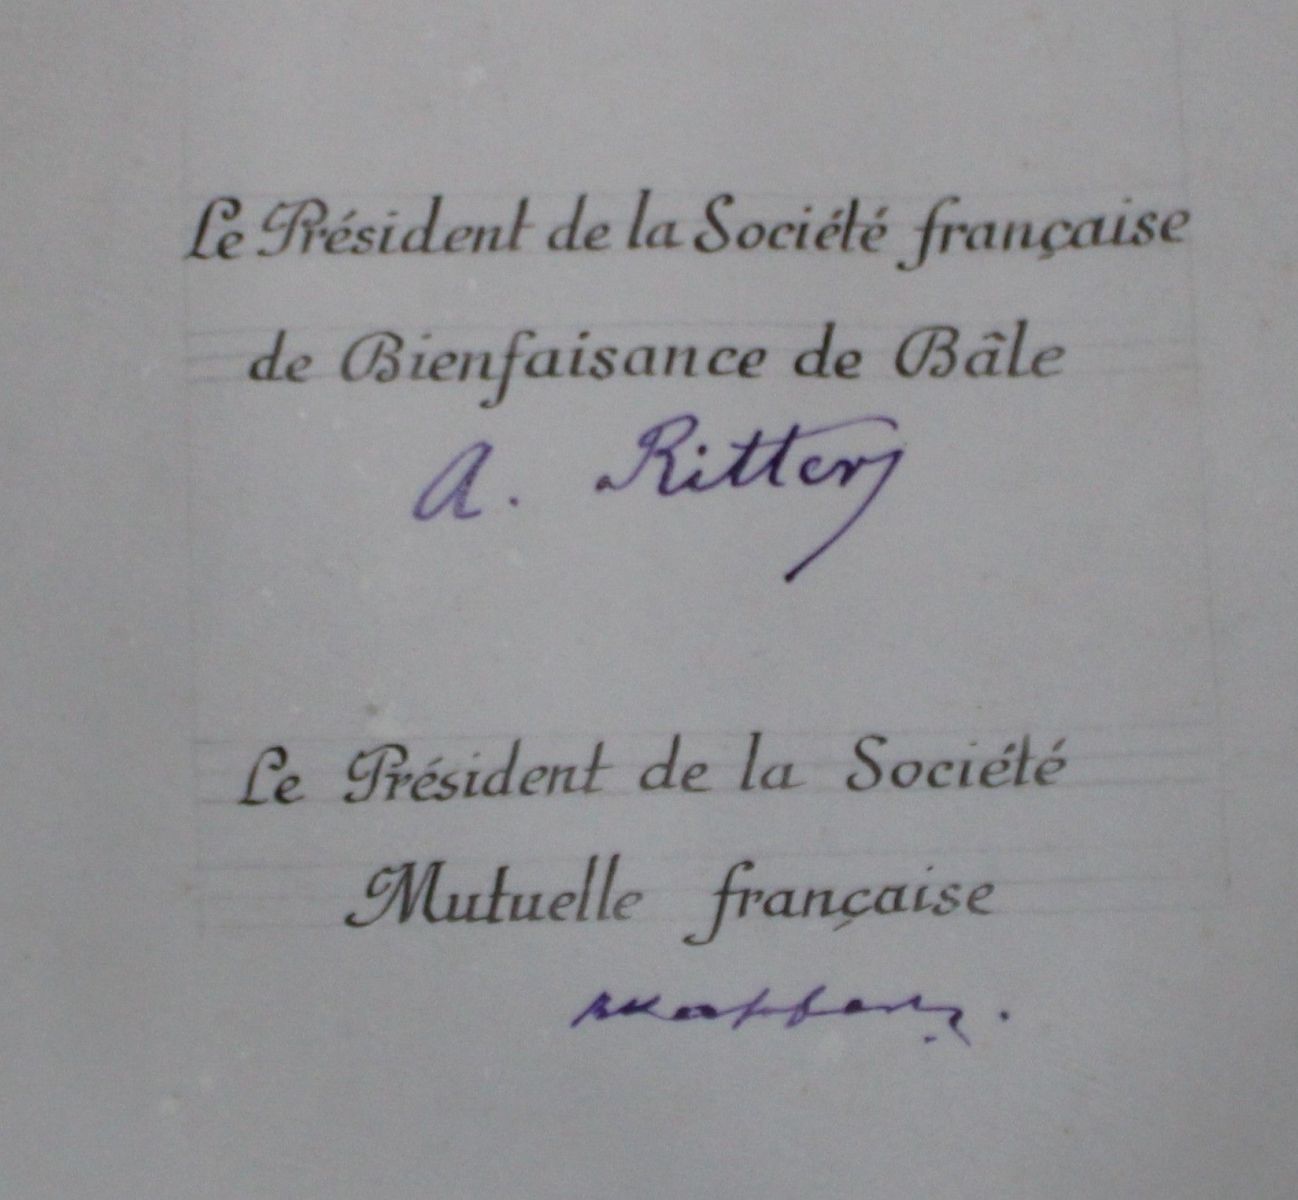 Le Président de la Société française
de Bienfaisance de Bâle
A. Ritter
Le Président de la Société
Mutuelle française